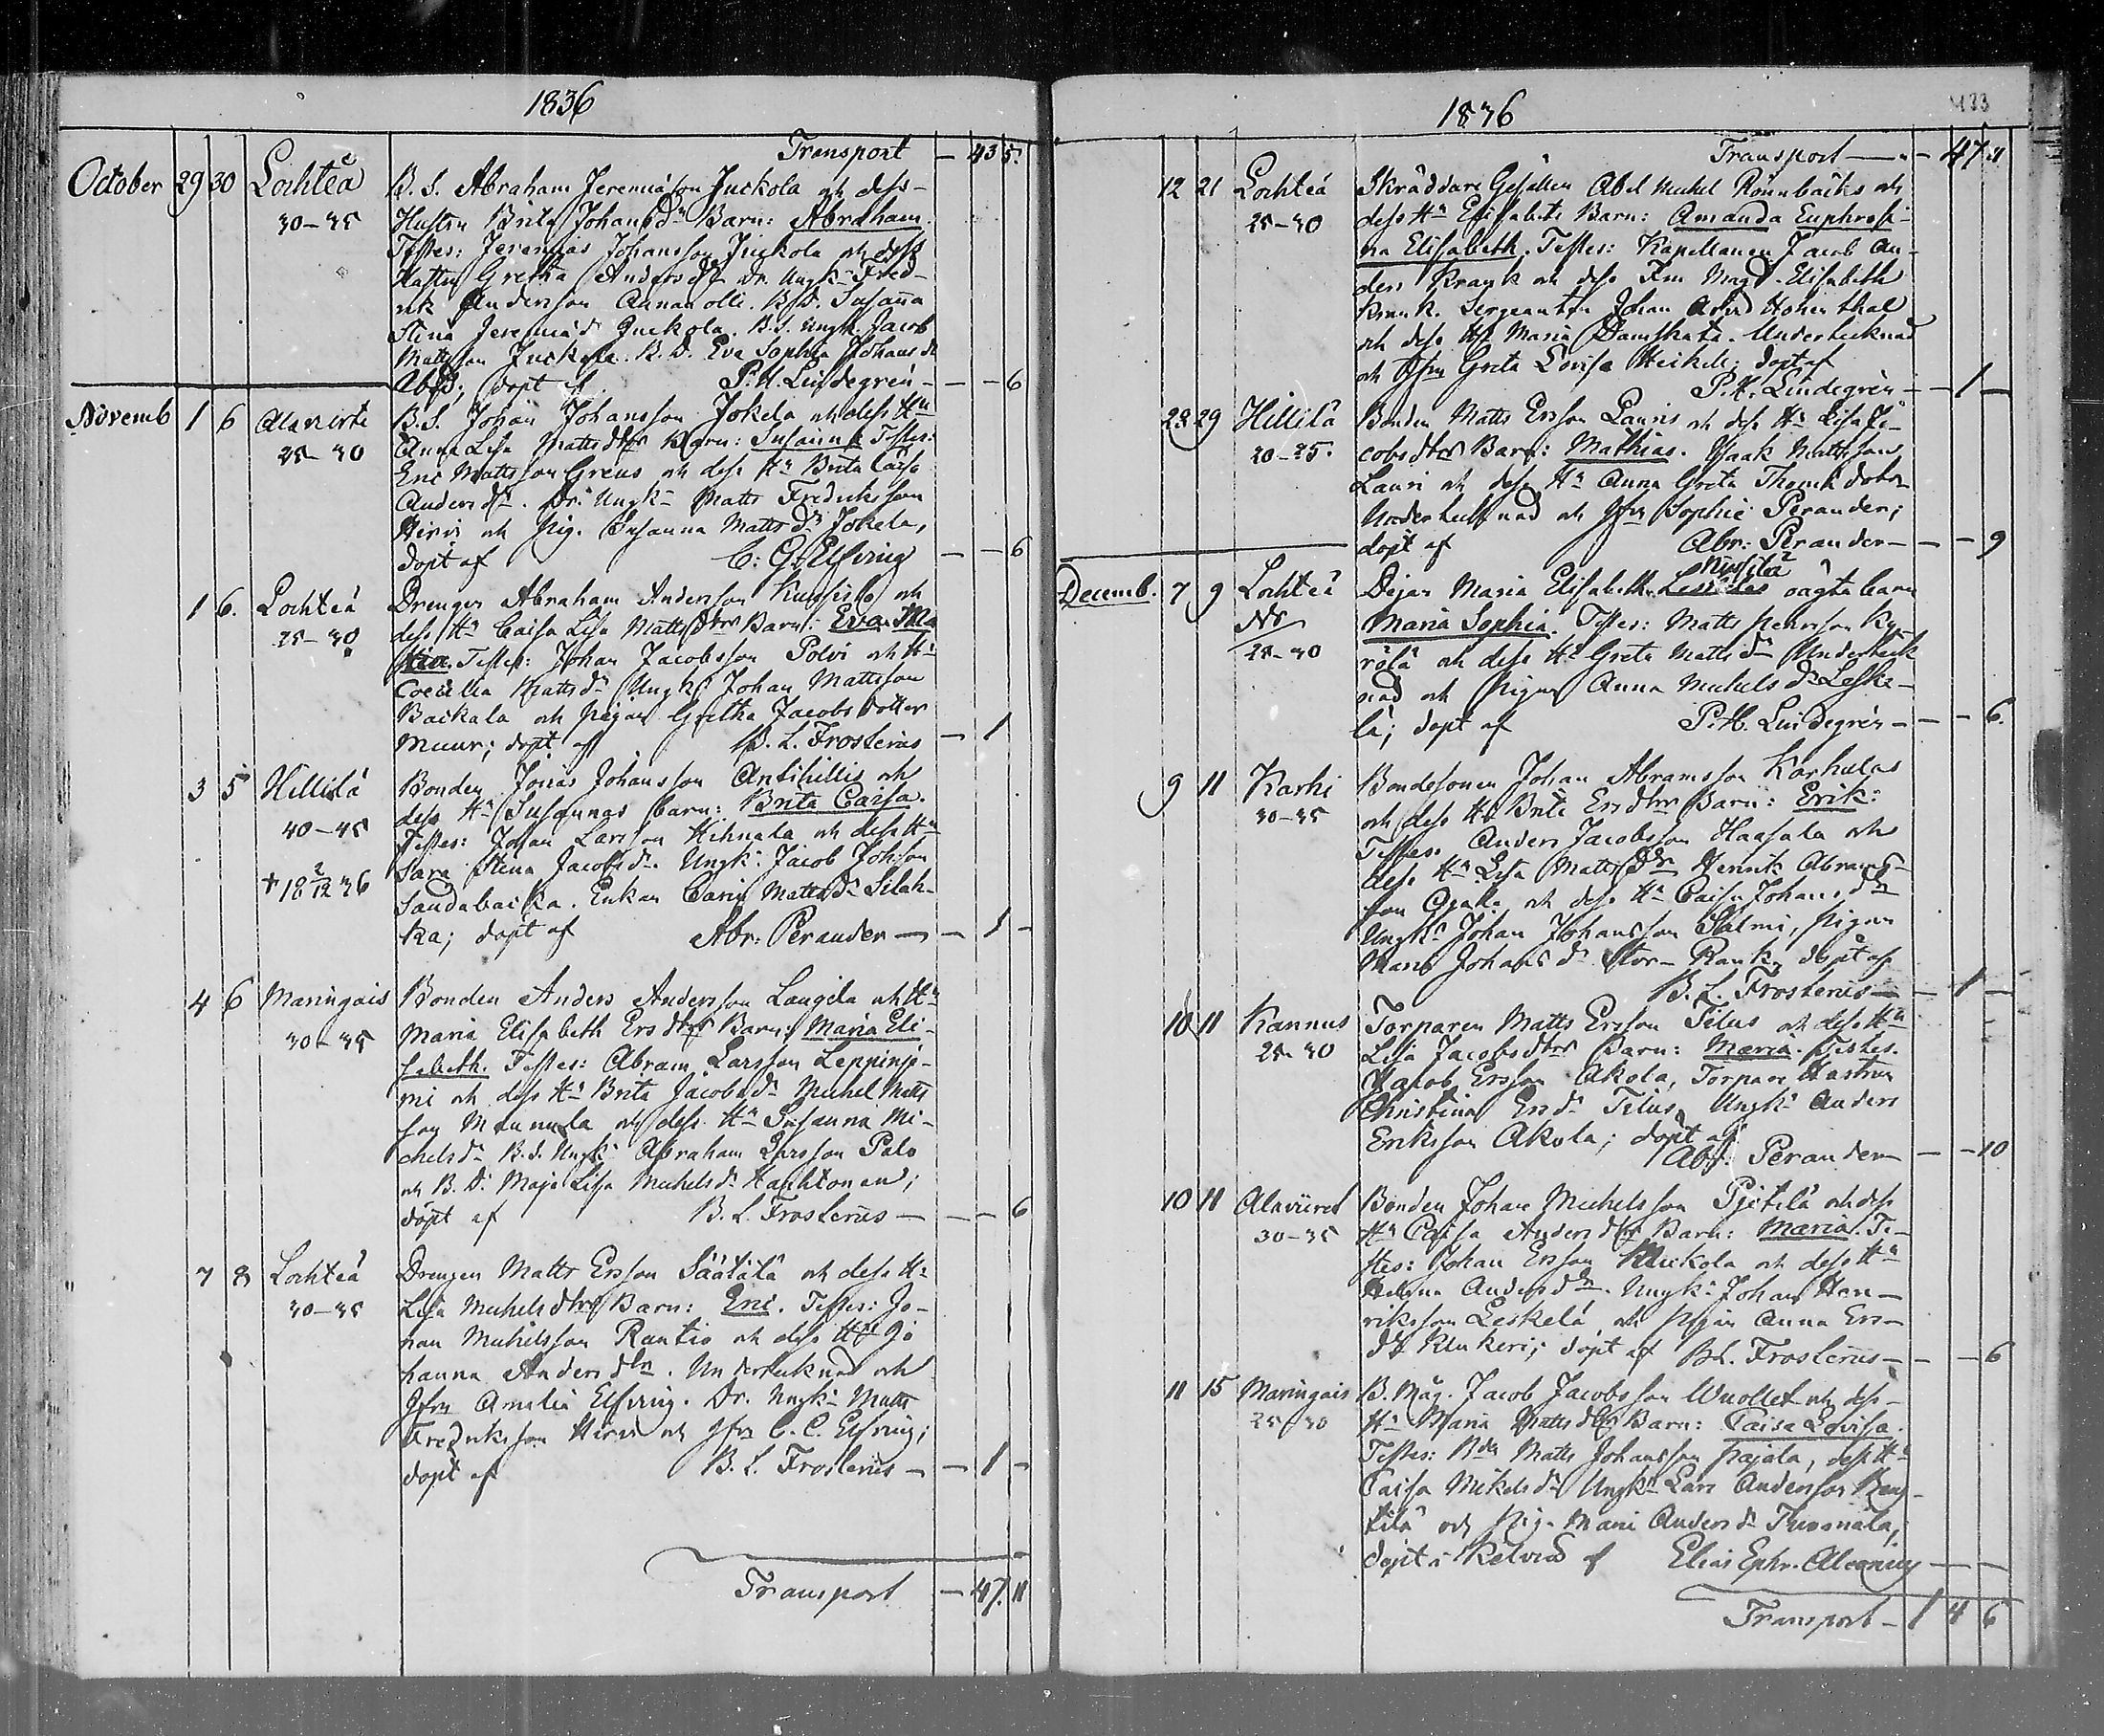 1836
Transport — 43 5.
October 29 30 Lochteå B. S. Abraham Jeremiasson Juckola och dess
30–35 Hustru Brita Johansdr Barn: Abraham.
Testes: Jeremias Johansson Juckola och dess
Hustru Gretha Andersdr Dr. Ungk. Fred-
rik Andersson Annanolli. B.D. Susanna
Stina Jeremiædr Juckola. B.S. Ungk. Jacob
Mattsson Juckola. B. D. Eva Sophia Johansdr
döpt af P. H. Lindegrén — — 6
Novemb 1 6 Alaviirte B. S. Johan Johansson Jokela och dess Hu
25–30 Anna Lisa Mattsdtrs Barn: Susanna Testes:
Eric Mattsson Greus och dess Hu Brita Caisa
Andersdr. Dr. Ungk. Matts Fredriksson
Hirvi och Pig. Susanna Mattsdr Jokela,
döpt af C: G. Elfving — — 6
1 6. Lochteå Drengen Abraham Andersson och
25–30 dess Hu Caisa Lisa Mattsdtrs Barn: Eva Ma
Testes: Johan Jacobsson Polvi och Hu
Coecilia Mattsdr Ungk. Johan Mattsson
Backala och Pigan Gretha Jacobsdotter
Muur; döpt af B. L. Frosterus — 1
3 5 Hillilä Bonden Jonas Johansson Antihillis och
40–45 dess Hu Susannas barn: Brita Caisa.
Testes: Johan Larsson Hihnala och dess Hu
† 18 2/12 36 Sara Stina Jacobsdr. Ungk. Jacob Johsson
Sandabacka. Enkan Carin Mattsdr Silah-
ka; döpt af Abr: Perander — — 1 –
4 6 Maringais Bonden Anders Andersson Laugila och Hu
30–35 Maria Elisabeth Ersdtrs Barn: Maria Eli-
sabeth. Testes: Abram Larsson Leppinje-
mi och dess Hu Brita Jacobsdr Michel Matts
son Mannula och dess Hu Susanna Mi-
chelsdr B. S. Ungk. Abraham Larsson Palo
och B. D. Maja Lisa Michelsdr Hanhtonen;
döpt af B. L. Frosterus — — — 6
7 8 Lochteå Drengen Matts Ersson Säätälä och dess Hu
30–35 Lisa Michelsdtrs Barn: Eric. Testes: Jo-
han Michelsson Rantio och dess Hu Jo
hanna Andersdtr. Undertecknad och
Jfru Amalia Elfving. Dr. Ungk. Matts
Fredriksson Hirvi och Jfru C. C. Elfving;
döpt af B. L. Frosterus — — 1 –
Transport — 47. 11
1836 433
Transport — 47 11
12 21 Lochteå Skräddare Gesällen Abel Michel Rönnbäcks och
25–30 dess Hu Elisabets Barn: Amanda Euphrosi-
na Elisabeth. Testes: Kapellanen Jacob An-
ders Krank och dess Fru Magd. Elisabeth
Krank. Sergeanten Johan Arvid Hohenthal
och dess Maria Damskata. Undertecknad
och Jfru Greta Lovisa Heikel; döpt af
P. H. Lindegrén — — 1 —
28 29 Hillilä Bonden Matts Ersson Lauris och dess Hu Lisa Ja-
20–25. cobsdtrs Barn: Mathias. Isaak Mattsson
Lauri och dess Hu Anna Greta
Undertecknad och Jfru Sophie Perander;
döpt af Abr: Perander — — — 9
Decemb. 7 9 Lochteå Dejan Maria Elisabeth oägta barn
25–30 Maria Sophia. Testes: Matts Pehrsson Ky-
rölä och dess Hu Greta Mattsdr Underteck
nad och Pigan Anna Michelsdr Leske-
lä; döpt af P. H. Lindegrén — — — 6.
9 11 Karhi Bondesonen Johan Abramsson Karhulas
30–35 och dess Hu Brita Ersdtrs Barn: Erik:
Testes. Anders Jacobsson Haasala och
dess Hu Lisa Mattsdtr Henrik Abrams-
son Ojala och dess Hu Caisa Johansdr
Ungk. Johan Johansson Salmi, Pigan
Maria Johansdr Stor- Rank, döpt af
B. L. Frosterus — — 1 —
10 11 Kannus Torparen Matts Ersson Titus och dess Hu
25–30 Lisa Jacobsdtrs Barn: Maria. Testes.
Jacob Ersson Akola, Torpare Hustrun
Christina Ersdr Titus, Ungk. Anders
Eriksson Akola; döpt af
Abr: Perander — — 10
10 11 Alaviiret Bonden Johan Michelsson Pjetilä och dess
30–35 Hu Caisa Andersdtrs Barn: Maria. Te-
stes: Johan Ersson och dess Hu
Helena Andersdtr. Ungk. Johan Hen-
riksson Leskelä och Pigan Anna Ers-
dr Klukeri; döpt af B.L. Frosterus — — — 6
11 15 Maringais B. Måg. Jacob Jacobsson Wuollet och dess
25–30 Hu Maria Mattsdtrs Barn: Caisa Lovisa.
Testes: Matts Johansson Pajala, dess Hu
Caisa Mikelsdr Ungk. Lars Andersson Beng-
tilä och Pig. Maria Andersdr Tuosnala;
döpt i Kelviå af Elias Ephr. Alcenius — —
Transport — 1 4 6